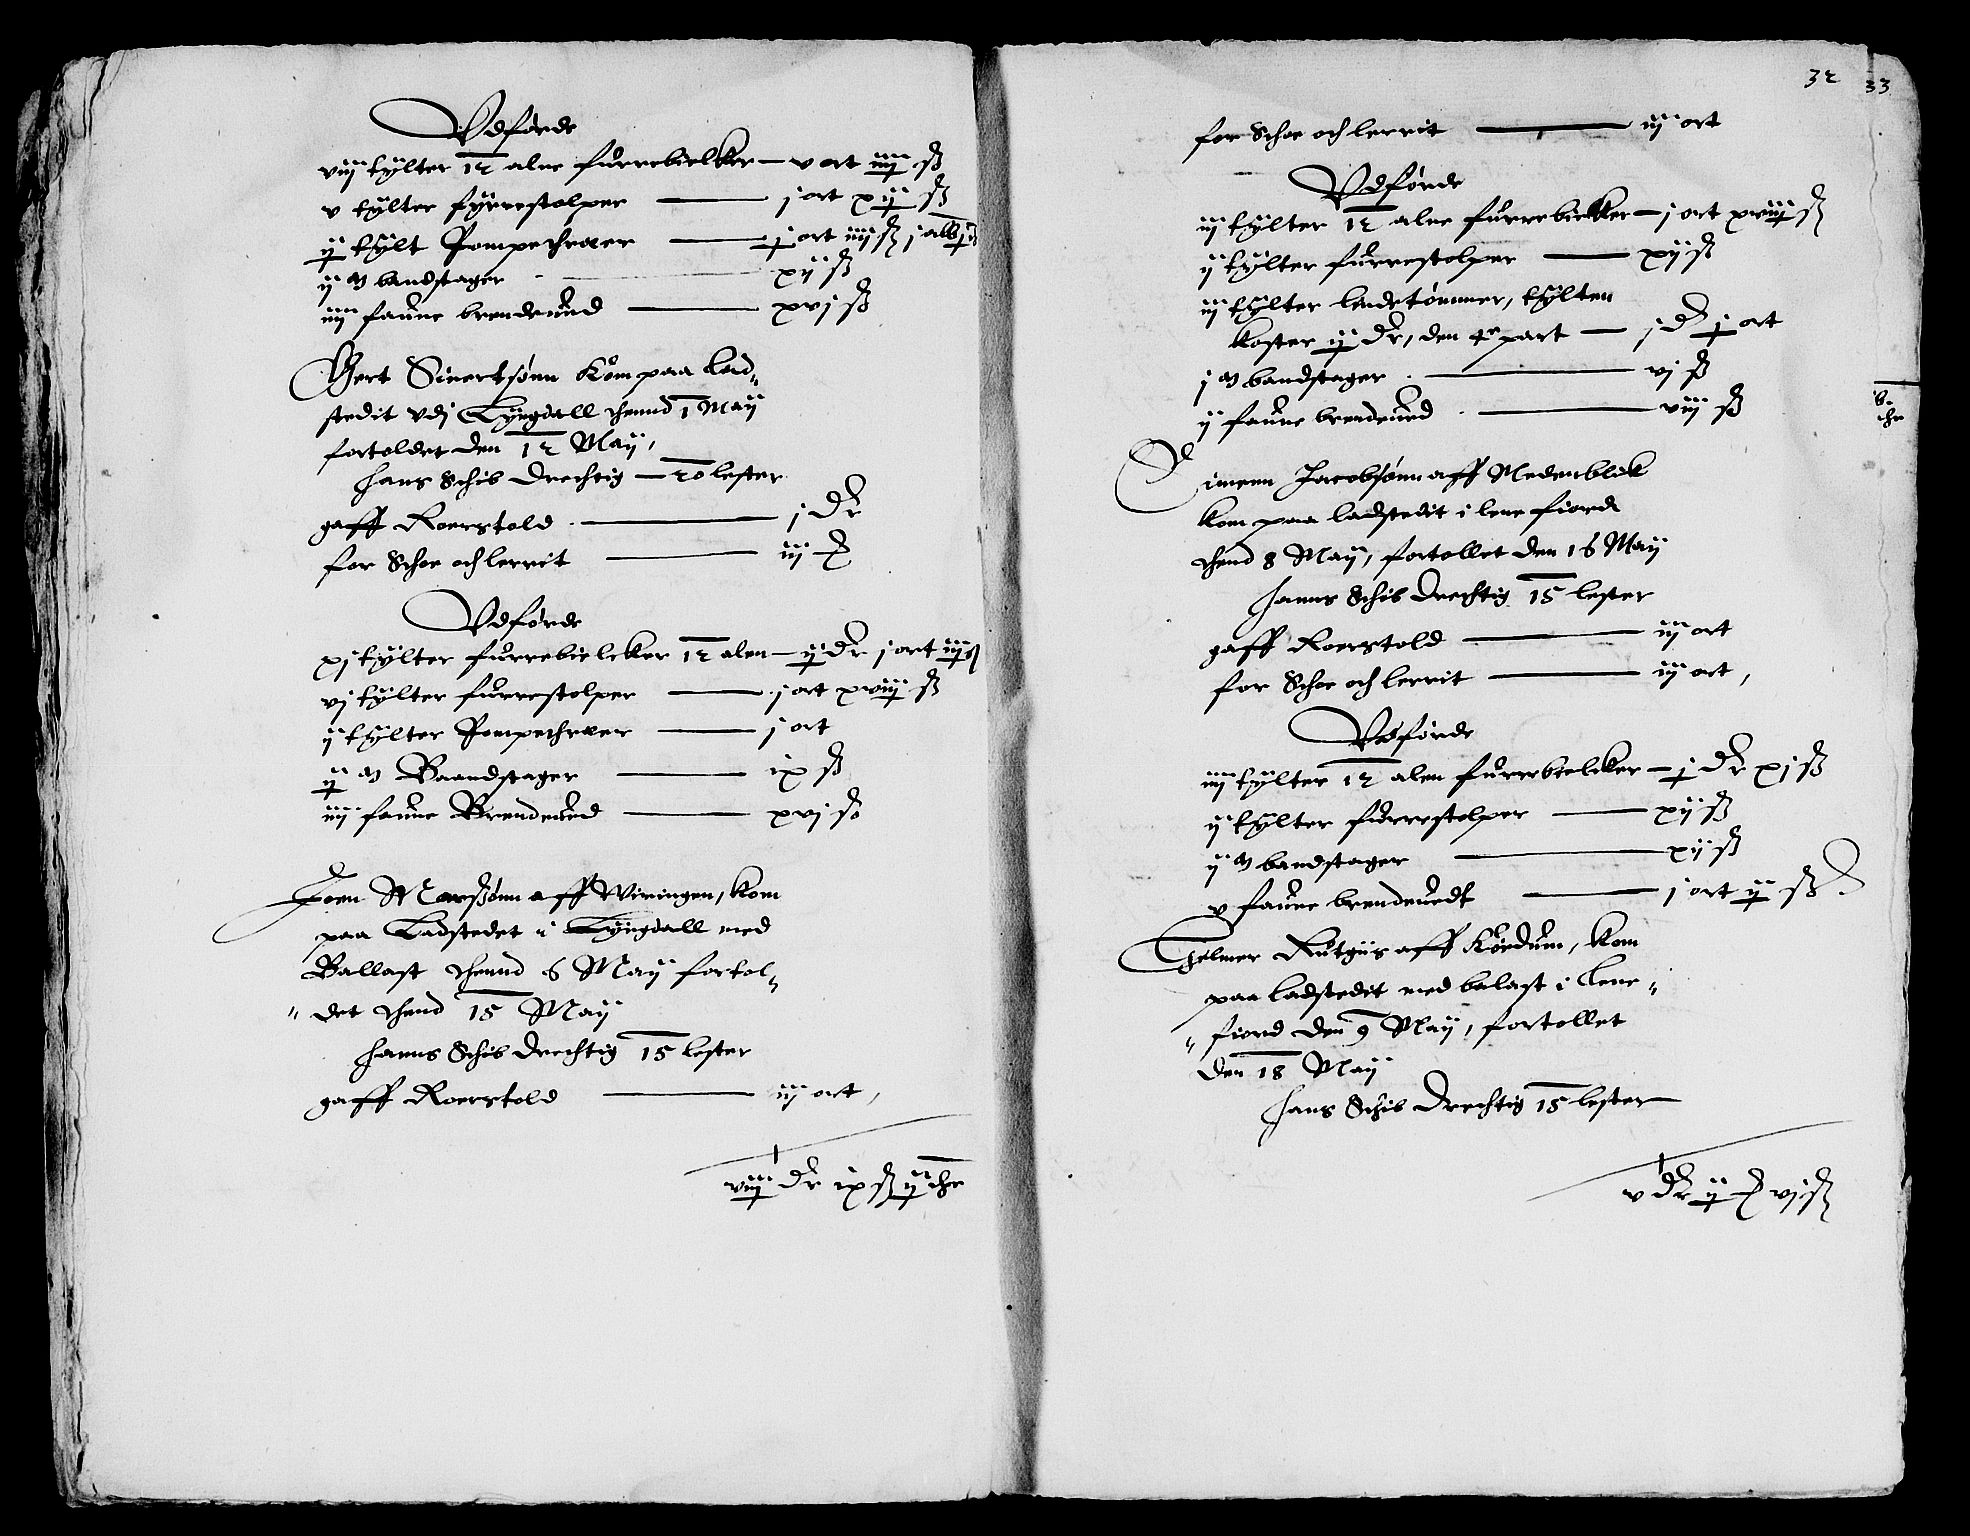 Vdførde
viij tylter 12 alne furrebielker — v ort iiij ß
v tylter fyrrestolper — j ort xij ß
ij tylt Pompethræer — j ort iiij ß j alb
ij m bandstager — xij ß
iiij faune brendeued — xvj ß
Gert Siuertsønn kom paa lad„
stedit vdj Lyngdall thennd 1 Maij
fortoldet den 12 Maij,
hans Schib drechtig — 20 lester
gaff Roerstold — j dr
for Schoe och lerrit — iij
Vdførde
xj tylter furrebielcker 12 alen — ij dr j ort iiij ß
vj tylter furrestolper — j ort xviij ß
ij tylter Pompethræer — j ort
ij m Baandstager — ix ß
iiij faune Brendeued — xvj ß
Joen Marßønn aff Wiringen, kom
paa Ladstedet i Lyngdall med
Ballast thennd 6 Maij fortol„
„ det thend 15 Maij
hanns Schib drechtig 15 lester
gaff Roerstold — iij ort,
viij dr ix ß ij
32 33
for Schoe och lerrit — iij ort
Vdførde
iij tylter 12 alne furrebielker — j ort xviij ß
ij tylter furrestolper — xij ß
iij tylter lendetømmer, tylten
koster ij dr, den 4 part — j d j ort
j m bandstager — vj ß
ij faune brendeued — viij ß
Simenn Jacobsønn aff Medenblek
kom paa ladstedit i lene fiord
thend 8 Maij, fortollet den 16 Maij
hanns Schib drechtig 15 lester
gaff Roerstold — iij ort
for Schoe och lerrit — iij ort,
Vdførde
iiij tylter 12 alen furrebielcker — j dr xj ß
ij tylter furrestolper — xij ß
ij m bandstager — xij ß
v faune brendeuedt — j ort ij ß
Helmer Rutgiis aff Kordum, kom
paa ladstedit med balast i Lene„
„ fiord den 9 Maij, fortollet
den 18 Maij
hans Schib drechtig 15 lester
v dr ij vj ß